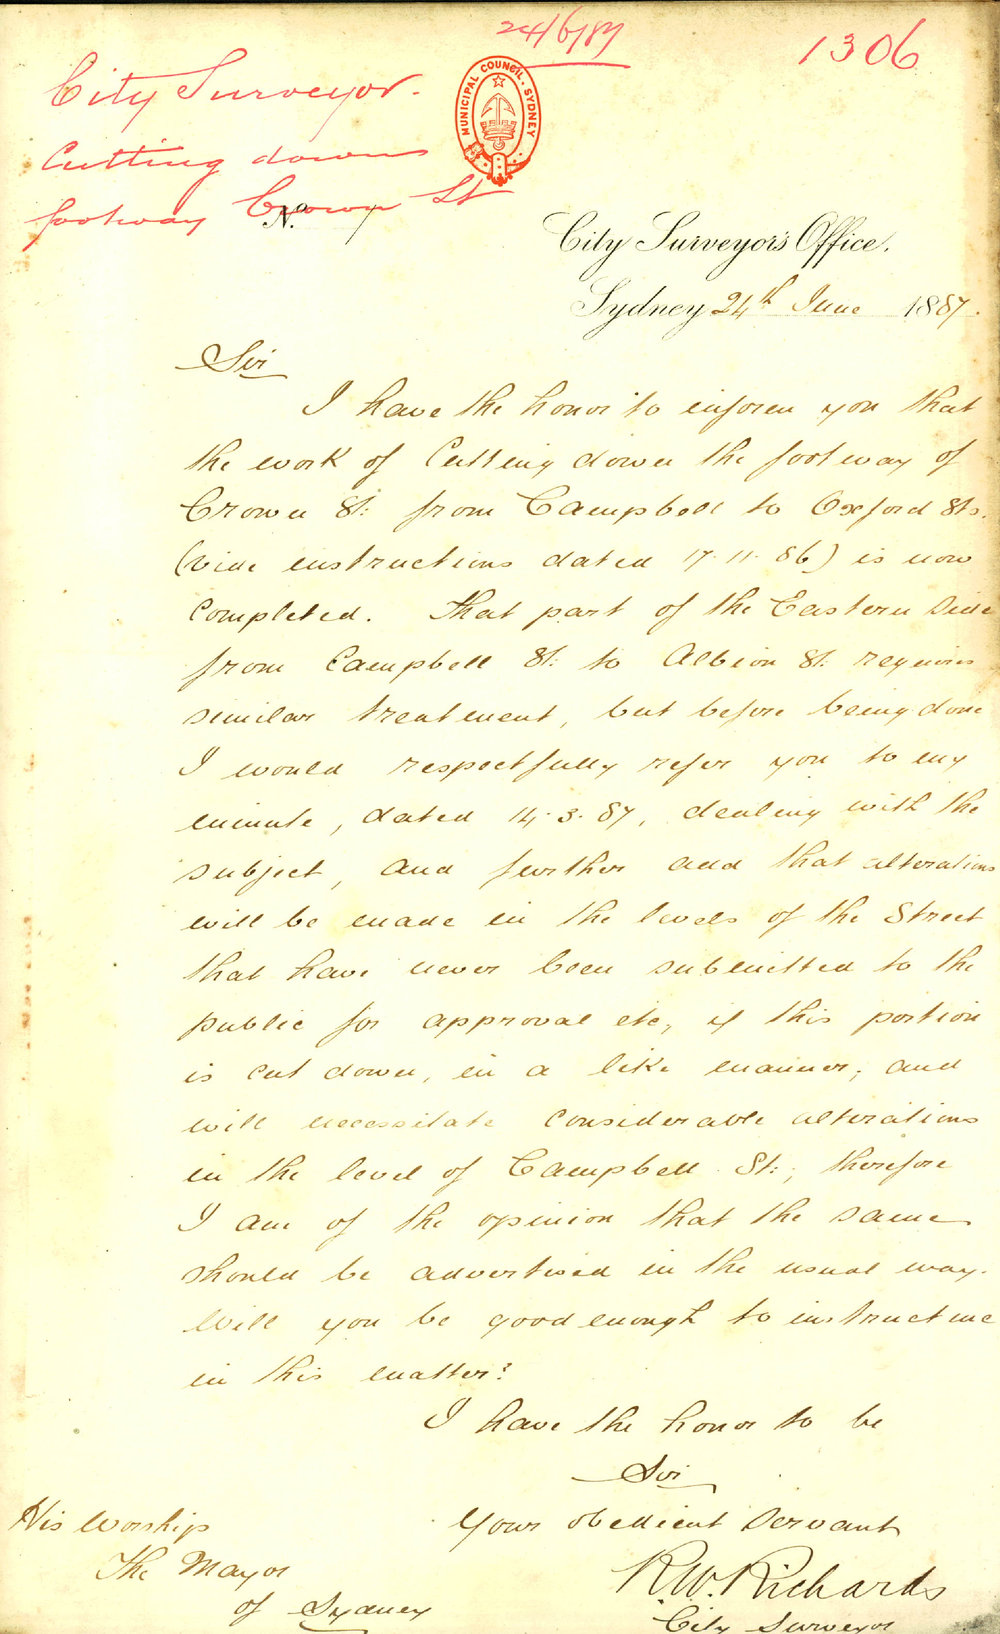 24/6/87
1306
City Surveyor.
Cutting down
footway Crown St
MUNICIPAL COUNCIL. SYDNEY
No.
City Surveyor's Office.
Sydney 24th June 1887.
Sir
I have the honor to inform you that
the work of Cutting down the footway of
Crown St: from Campbell to Oxford Sts.
(vide instructions dated 17.11.86) is now
Completed. That part of the Eastern Side
from Campbell St: to Albion St: requires
similar treatment, but before being done
I would respectfully refer you to my
minute, dated 14.3.87, dealing with the
subject, and further add that alterations
will be made in the levels of the Street
that have never been submitted to the
public for approval etc, if this portion
is cut down, in a like manner; and
will necessitate considerable alterations
in the level of Campbell St:, therefore
I am of the opinion that the same
should be advertised in the usual way.
Will you be good enough to instruct me
in this matter?
I have the honor to be
Sir
Your obedient Servant
R.W. Richards
City Surveyor
His Worship
The Mayor
of Sydney